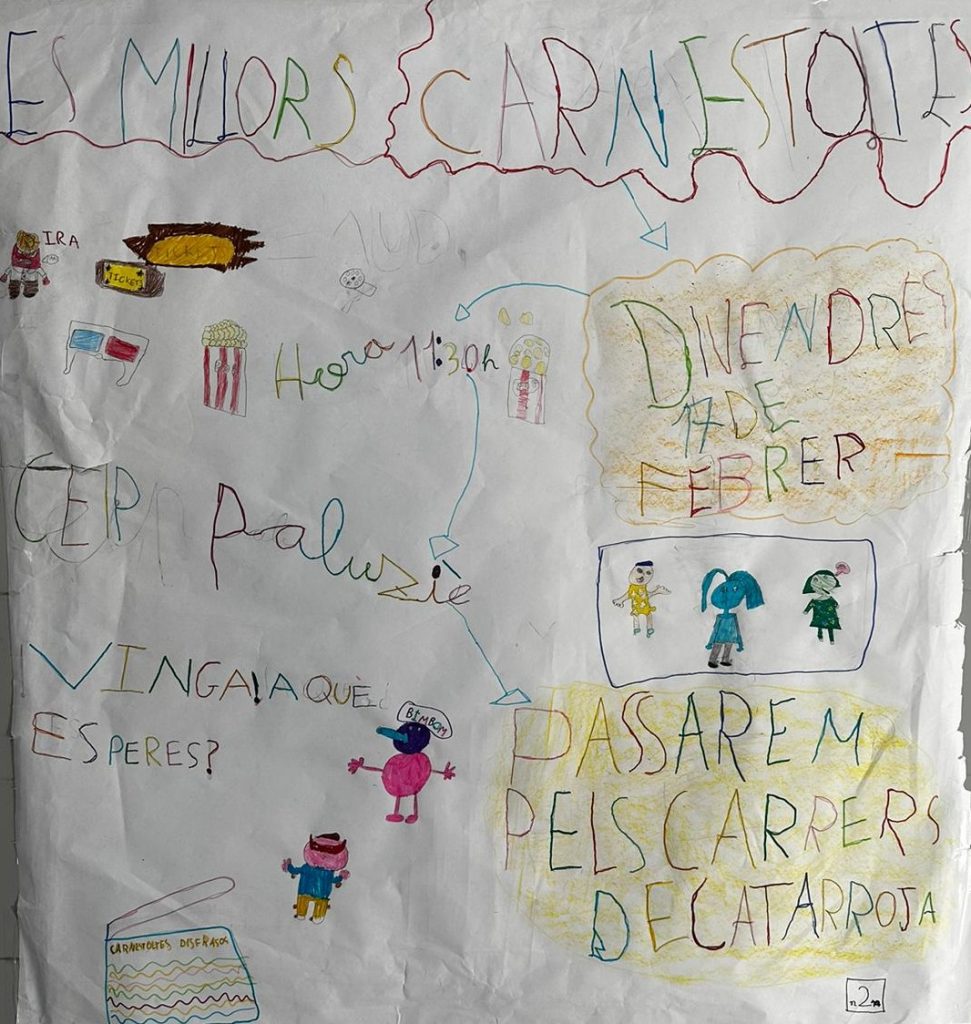 ES MILLORS CARNESTOLTES
IRA
TICKET
TICKET
Hora 11:30h
DIVENDRES
17 DE
FEBRER
CEIP Paluzie
VINGA! A QUÈ
ESPERES?
BIMBOM
PASSAREM
PELS CARRERS
DE CATARROJA
CARNESTOLTES DISFRASOS
2